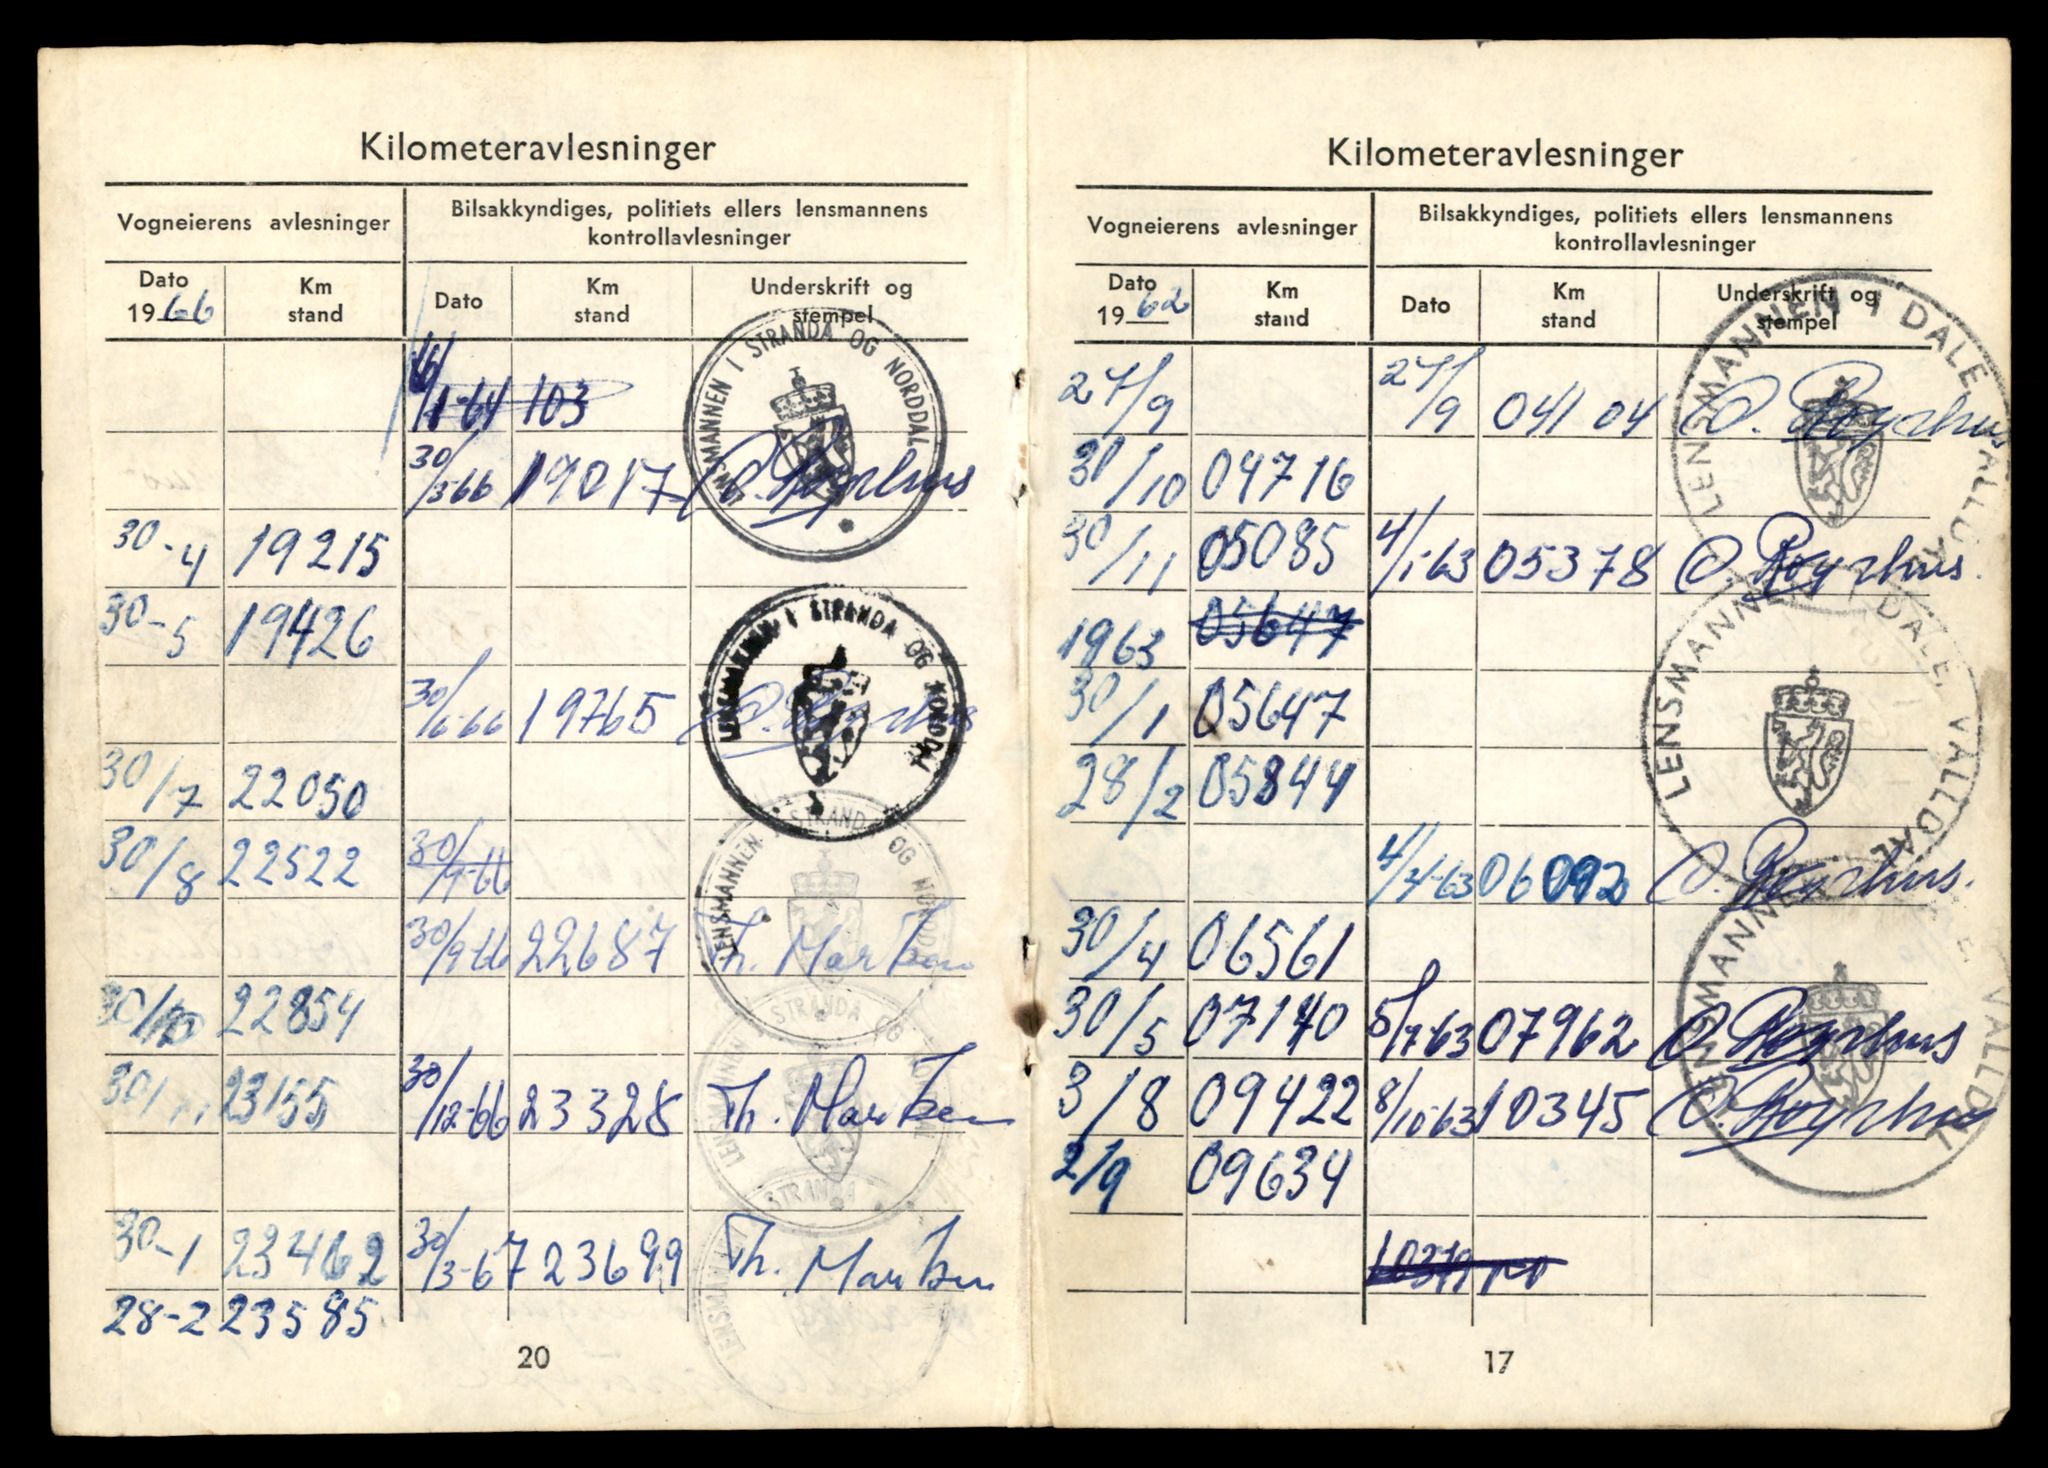 Kilometeravlesninger
Vogneierens avlesninger
Bilsakkyndiges, politiets ellers lensmannens
kontrollavlesninger
Dato
1966
Km
stand
Dato
Km
stand
Underskrift og
stempel
LENSMANNEN I STRANDA OG NORDDAL
1-64 103
30/3-66 19017
30-4 19215
30-5 19426
LENSMANNEN I STRANDA OG NORDDAL
30/6-66 19765
30/7 22050
30/8 22522 30/9-66
LENSMANNEN STRANDA OG NORDDAL
30/9-66 22687 Th.
30/10 22854
LENSMANNEN STRANDA OG NORDDAL
30/11 23155 30/12-66 23328 Th.
LENSMANNEN STRANDA
30-1 23462 30/3-67 23699 Th.
28-2 23585
20
Kilometeravlesninger
Vogneierens avlesninger
Bilsakkyndiges, politiets ellers lensmannens
kontrollavlesninger
Dato
1962
Km
stand
Dato
Km
stand
Underskrift og
stempel
LENSMANNEN I DALE, VALLDAL
27/9 27/9 04104
30/10 04716
30/11 05085 4/1-63 05378
1963 05647
LENSMANNEN I DALE, VALLDAL
30/1 05647
28/2 05844
4/4-63 06092
30/4 06561
LENSMANNEN VALLDAL
30/5 07140 5/7-63 07962
3/8 09422 8/10-63 10345
2/9 09634
17